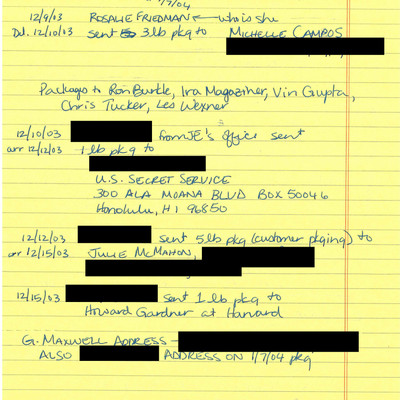 12/9/03 ROSALIE FRIEDMAN ← who is she
Del. 12/10/03 sent 3 lb pkg to MICHELLE CAMPOS
Packages to Ron Burkle, Ira Magaziner, Vin Gupta,
Chris Tucker, Les Wexner
12/10/03 from JE's office sent
arr 12/12/03 1 lb pkg to
U.S. SECRET SERVICE
300 ALA MOANA BLVD BOX 50046
Honolulu, HI 96850
12/12/03 sent 5 lb pkg (customer pkging) to
arr 12/15/03 JULIE McMAHON,
12/15/03 sent 1 lb pkg to
Howard Gardner at Harvard
G. MAXWELL ADDRESS -
ALSO ADDRESS ON 1/7/04 pkg